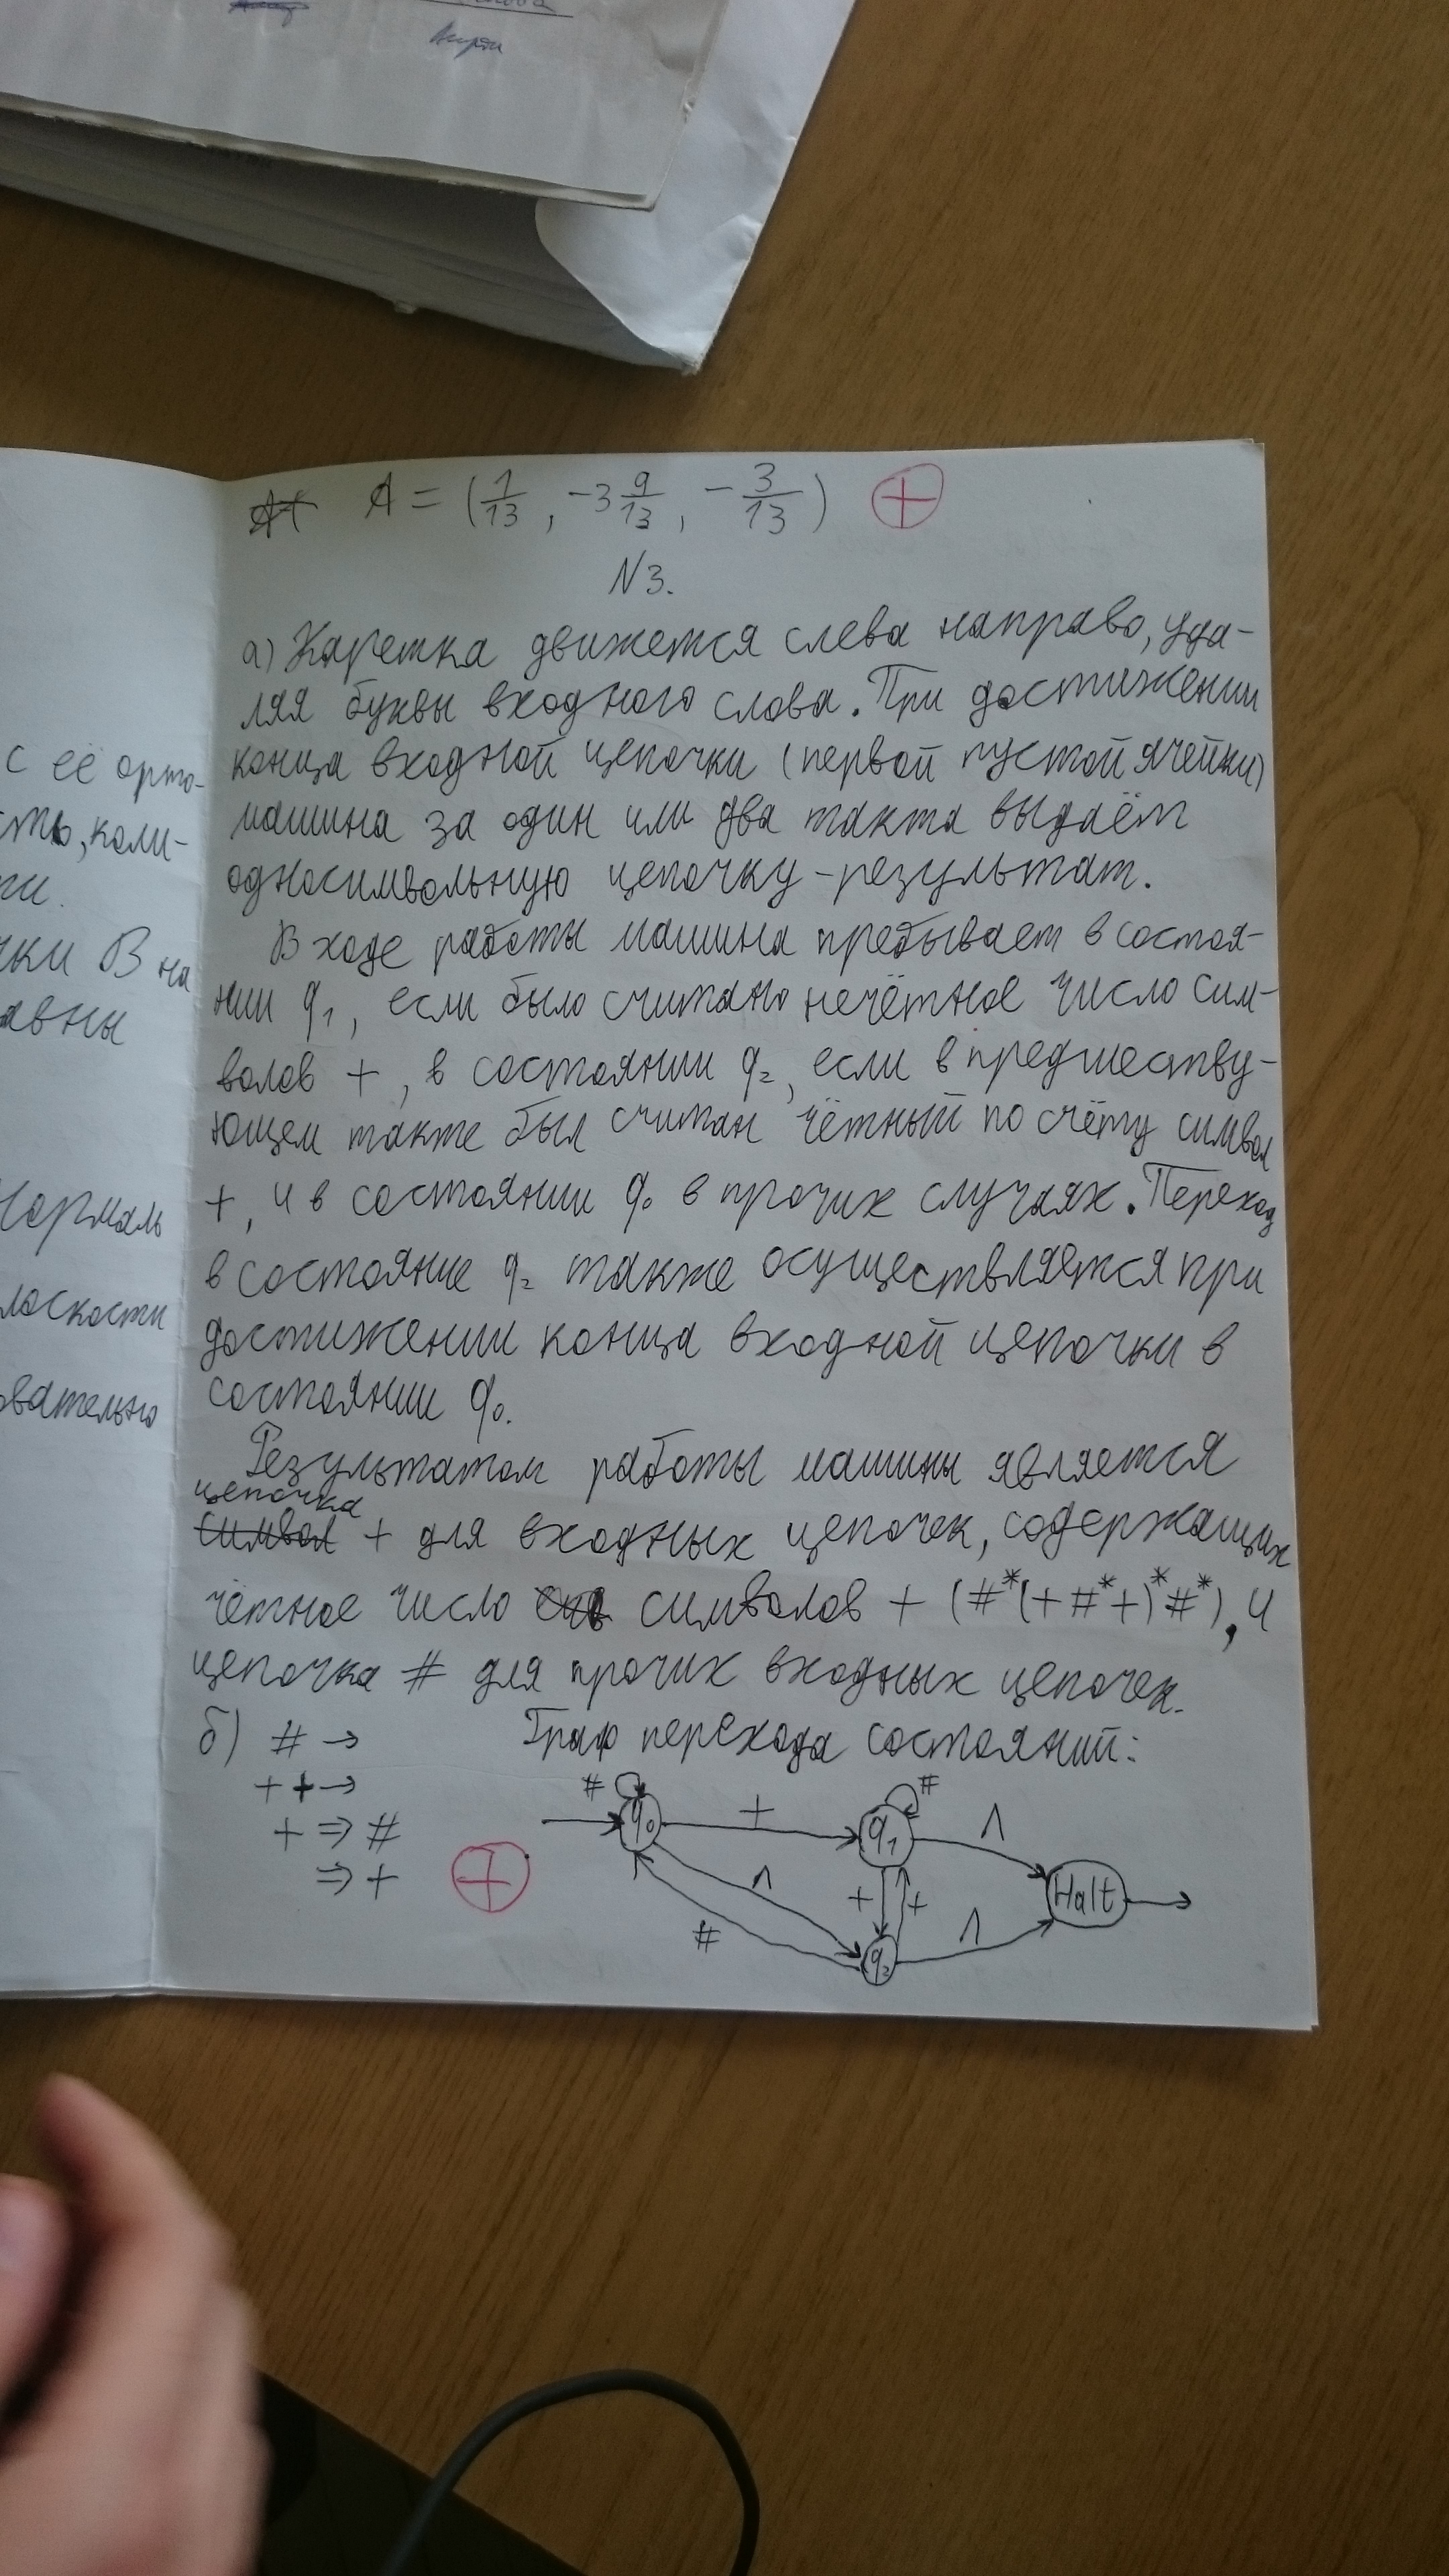 A = (1/13, -3 9/13, -3/13) +
N3.
а) Каретка движется слева направо, уда-
ляя буквы входного слова. При достижении
с её орто-
конца входной цепочки (первой пустой ячейки)
машина за один или два такта выдаёт
односимвольную цепочку-результат.
В ходе работы машина пребывает в состоя-
ки В на
нии q₁, если было считано нечётное число сим-
авны
волов +, в состоянии q₂, если в предшеству-
ющем такте был считан чётный по счёту символ
Нормаль
+, и в состоянии q₀ в прочих случаях. Переход
в состояние q₂ также осуществляется при
лоскости
достижении конца входной цепочки в
овательно
состоянии q₀.
Результатом работы машины является
цепочка
символ + для входных цепочек, содержащих
чётное число символов + (#*(+#*+)*#*), и
цепочка # для прочих входных цепочек.
б) # → Граф перехода состояний:
++→
+ ⇒ #
⇒ +
+
# q₀ + q₁ # Λ
Λ + + Halt
# q₂ Λ